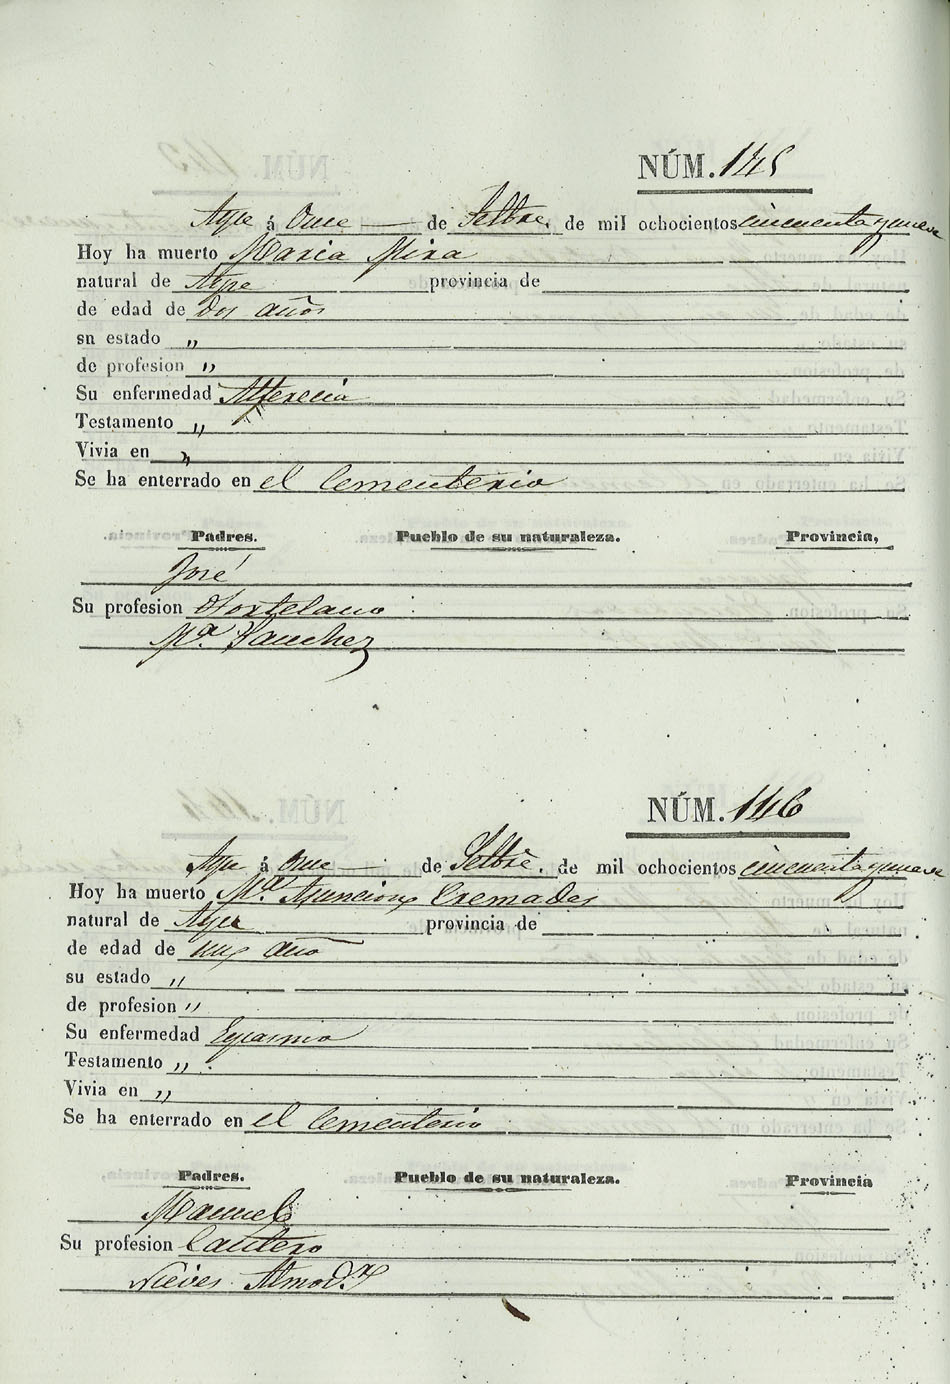 NÚM. 145
Aspe á Once de Setbre. de mil ochocientos cincuenta y nueve
Hoy ha muerto Maria Mira
natural de Aspe provincia de
de edad de dos años
sn estado "
de profesion "
Su enfermedad Alferecia
Testamento "
Vivia en "
Se ha enterrado en el Cementerio
Padres. Pueblo de su naturaleza. Provincia,
José
Su profesion Hortelano
Mª. Sanchez
NÚM. 146
Aspe á Once de Setbre. de mil ochocientos cincuenta y nueve
Hoy ha muerto Mª. Asuncion Cremades
natural de Aspe provincia de
de edad de un año
su estado "
de profesion "
Su enfermedad Espasmo
Testamento "
Vivia en "
Se ha enterrado en el Cementerio
Padres. Pueblo de su naturaleza. Provincia
Manuel
Su profesion Cantero
Nieves